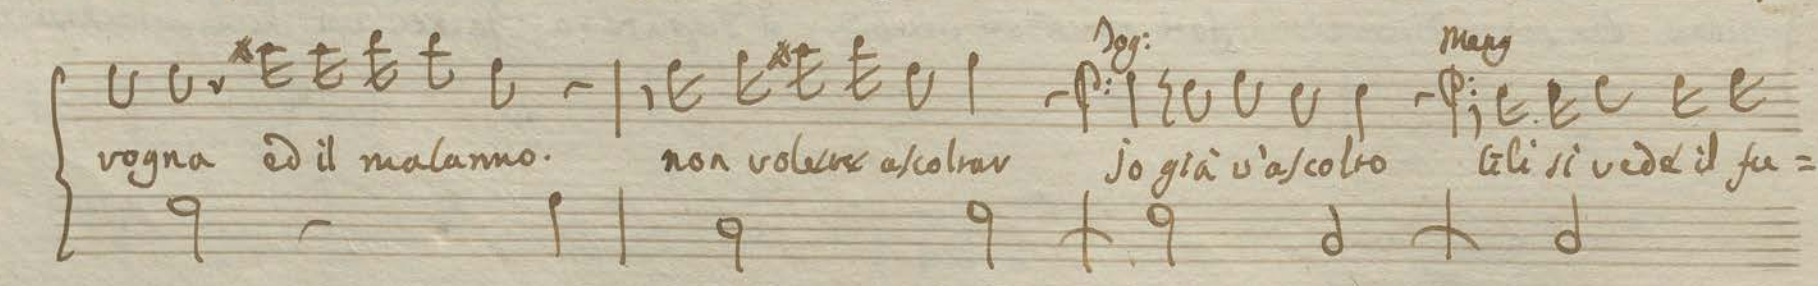 Dog: Mang
vogna ed il malanno. non volere ascoltar jo già v'ascolto si vede il fu=